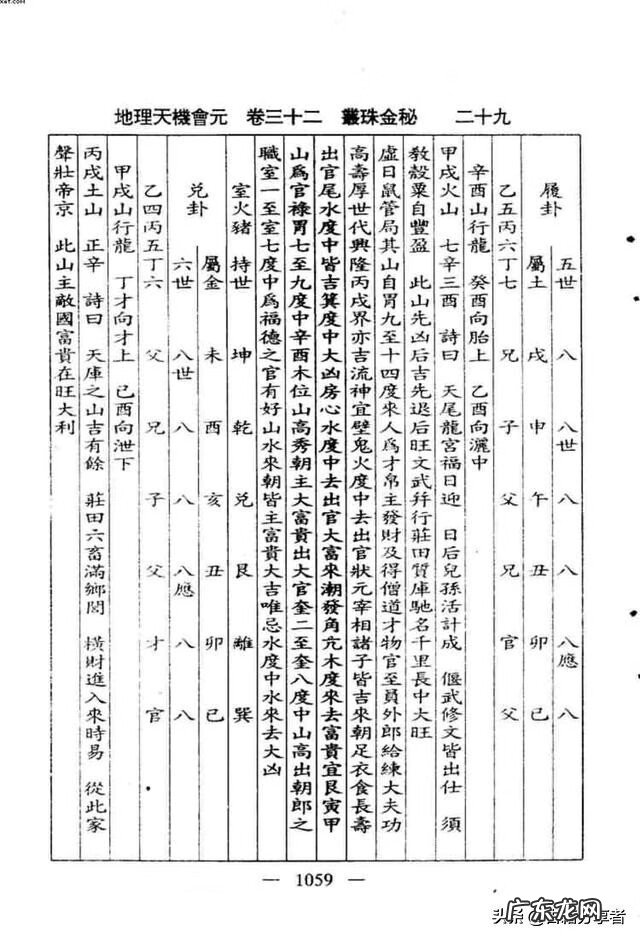 地理天機會元 卷三十二 叢珠金秘 二十九
履卦
五世 八 八世 八 八 八應 八
屬土 戌 申 午 丑 卯 巳
乙五丙六丁七 兄 子 父 兄 官 父
辛酉山行龍 癸酉向胎上 乙酉向灑中
甲戌火山 七辛三酉 詩曰 天尾龍宮福日迎 日后兒孫活計成 偃武修文皆出仕 須
教殼粟自豐盈 此山先凶后吉先退后旺文武并行莊田質庫馳名千里長中大旺
虛日鼠管局其山自胃九至十四度來人爲才帛主發財及得僧道才物官至員外郎給練大夫功
高壽厚世代興隆丙戌界亦吉流神宜壁鬼火度中去出官狀元宰相諸子皆吉來朝足衣食長壽
出官尾水度中皆吉箕度中大凶房心水度中去出官大富來潮發角亢木度來去富貴宜艮寅甲
山爲官祿胃七至九度中辛酉木位山高秀朝主大富貴出大官奎二至奎八度中山高出朝郎之
職室一至室七度中爲福德之官有好山水來朝皆主富貴大吉唯忌水度中水來去大凶
室火豬 持世 坤 乾 兌 艮 離 巽
兌卦
屬金 未 酉 亥 丑 卯 巳
六世 八世 八 八 八應 八 八
乙四丙五丁六 父 兄 子 父 才 官
甲戌山行龍 丁才向才上 己酉向泄下
丙戌土山 正辛 詩曰 天庫之山吉有餘 莊田六畜滿鄉閭 橫財進入來時易 從此家
聲壯帝京 此山主敵國富貴在旺大利
— 1059 —
头条 @古籍分享者
广东龙网